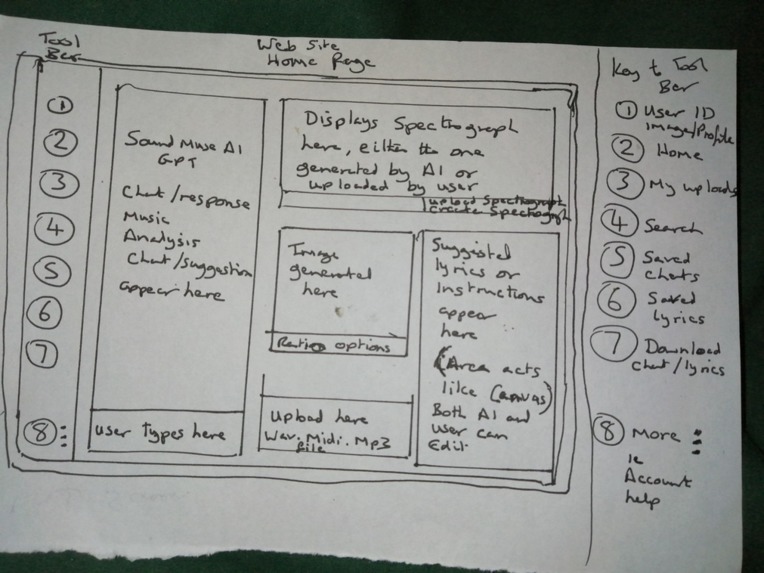 Tool
Bar
Web Site
Home Page
1
2
3
4
5
6
7
8
Sound Muse AI
GPT
Chat/response
Music
Analysis
Chat/suggestion
appear here
User Types here
Displays Spectrograph
here, either the one
generated by AI or
uploaded by user
upload Spectrograph
Create Spectrograph
Image
generated
here
Ratios options
Upload here
Wav. Midi. Mp3
file
Suggested
lyrics or
Instructions
appear
here
(Area acts
like Canvas)
Both AI and
user can
Edit.
Key to Tool
Bar
1 User ID
image/Profile
2 Home
3 My uploads
4 Search
5 Saved
chats
6 Saved
lyrics
7 Download
chat/lyrics
8 More
ie
Account
help